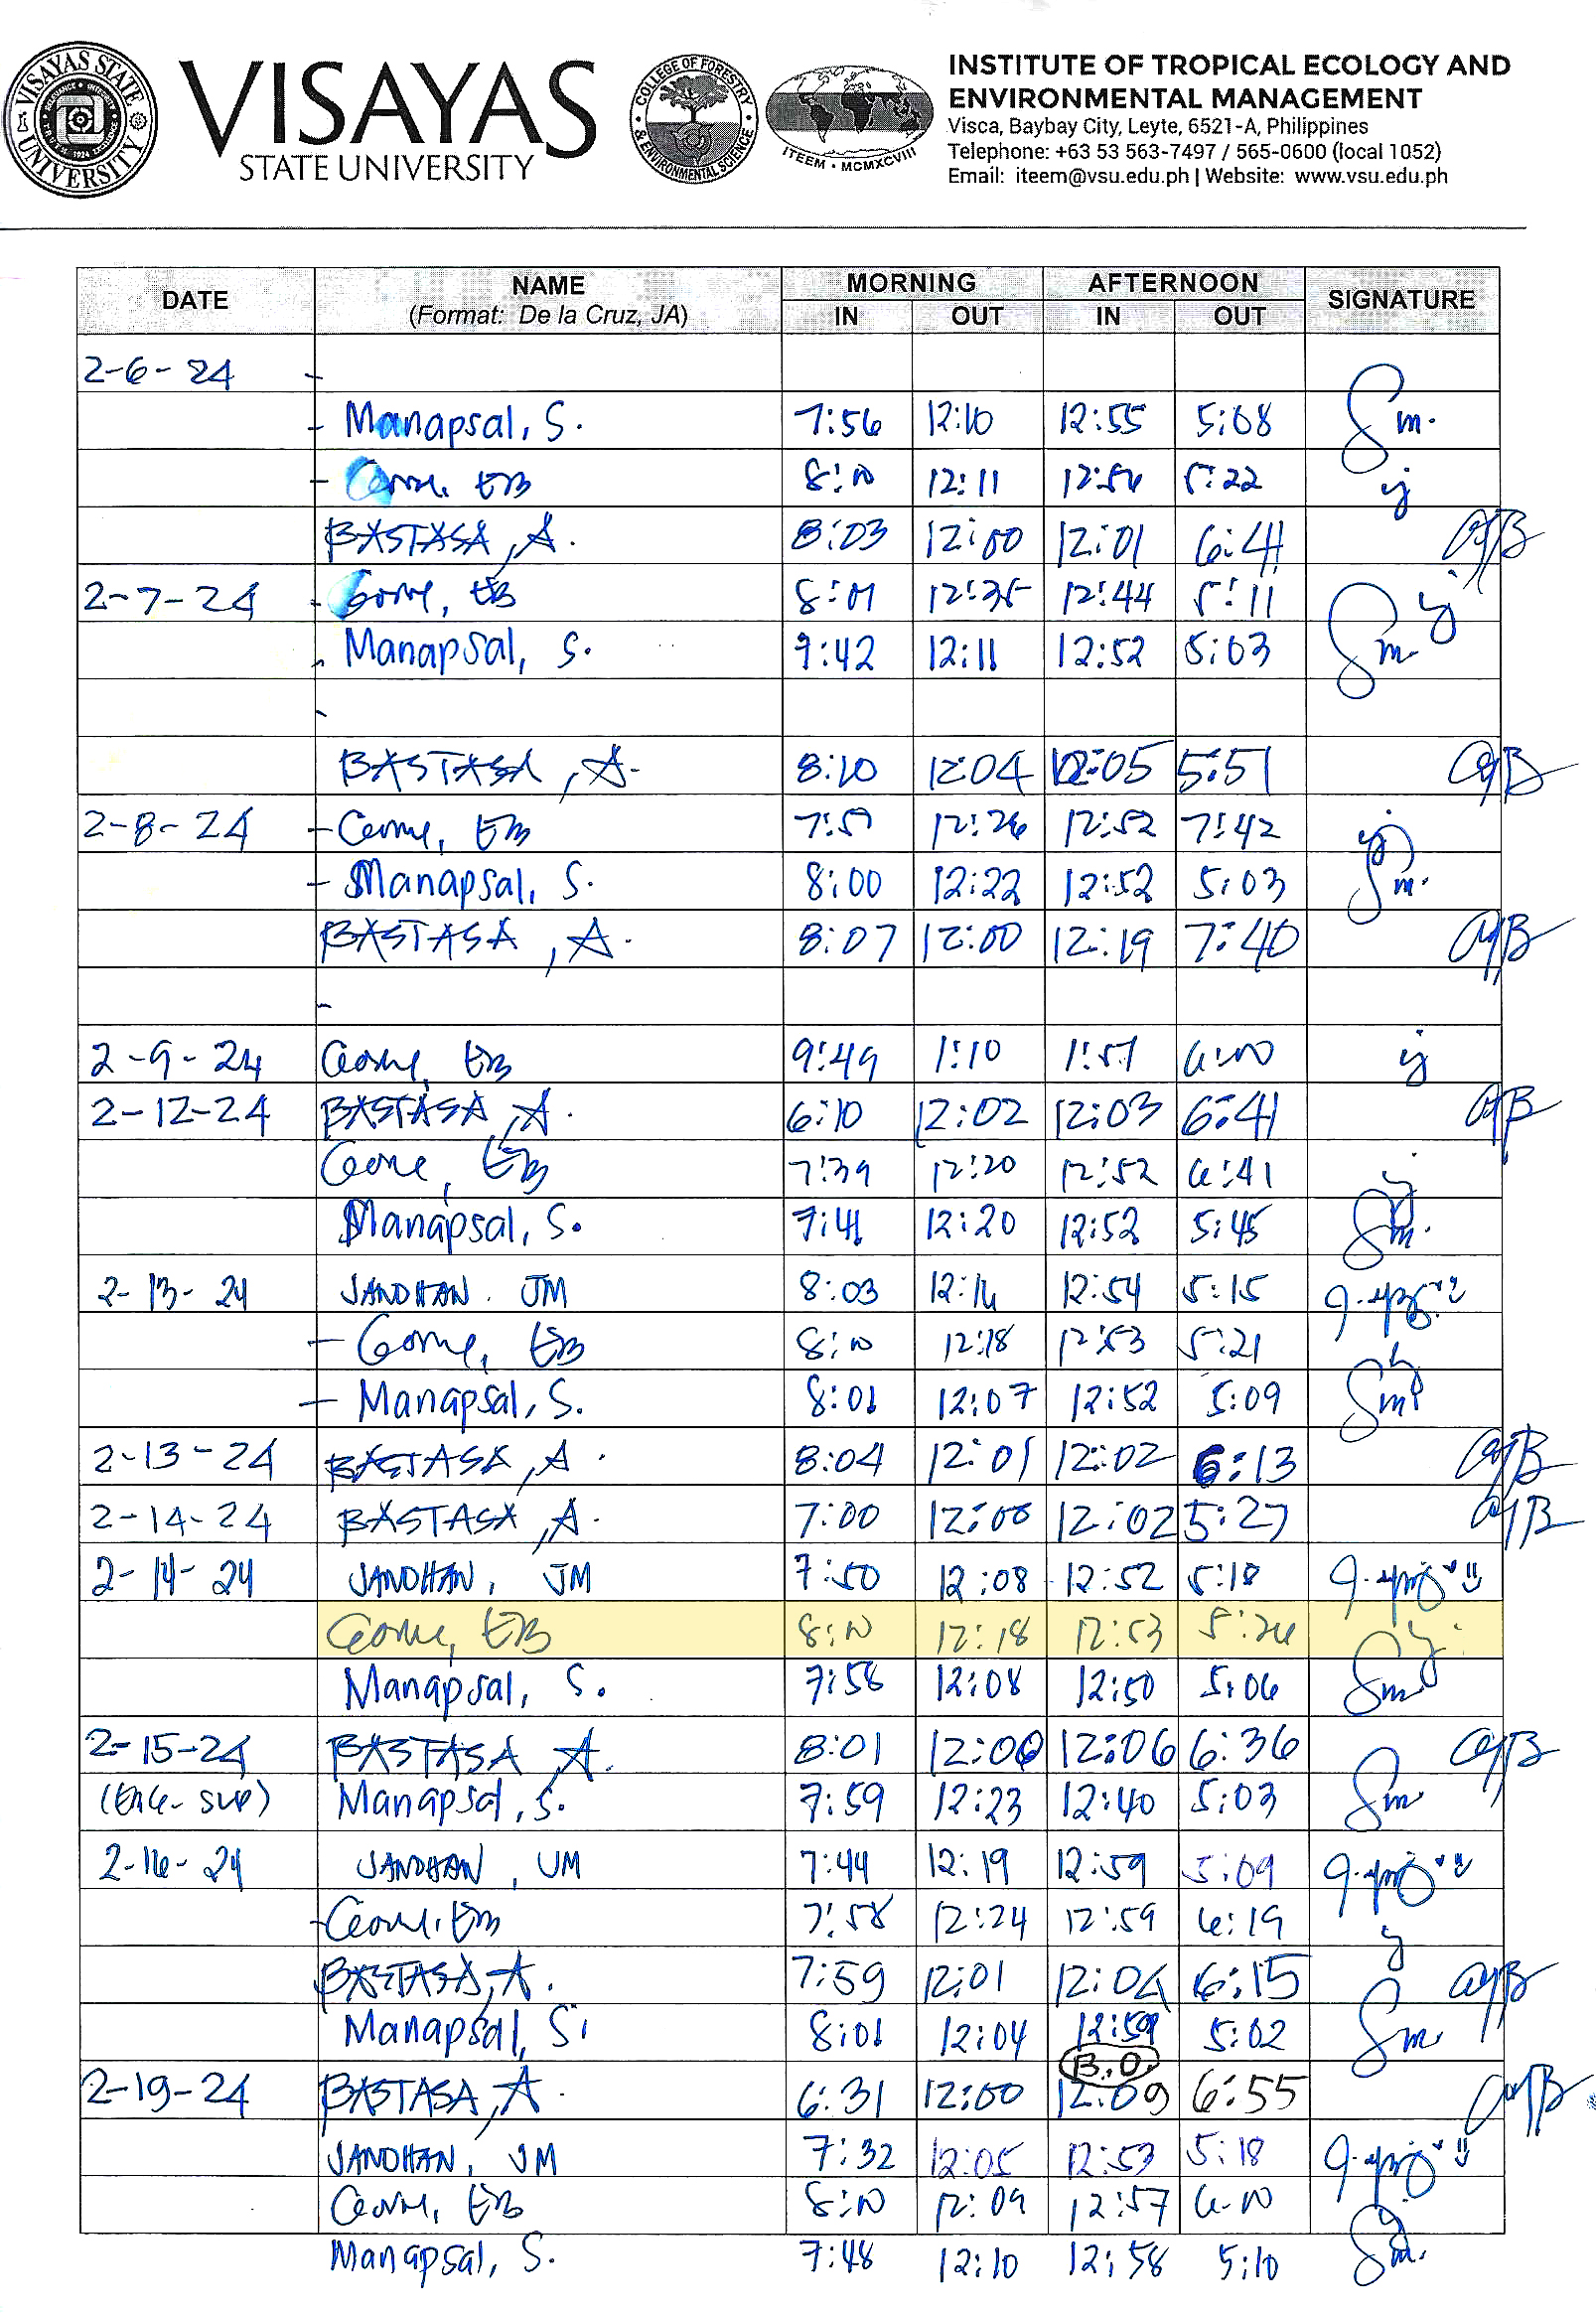 VISAYAS
STATE UNIVERSITY
VISAYAS STATE UNIVERSITY
COLLEGE OF FORESTRY & ENVIRONMENTAL SCIENCE
ITEEM • MCMXCVIII
INSTITUTE OF TROPICAL ECOLOGY AND
ENVIRONMENTAL MANAGEMENT
Visca, Baybay City, Leyte, 6521-A, Philippines
Telephone: +63 53 563-7497 / 565-0600 (local 1052)
Email: iteem@vsu.edu.ph | Website: www.vsu.edu.ph
DATE NAME MORNING AFTERNOON SIGNATURE
(Format: De la Cruz, JA) IN OUT IN OUT
2-6-24
Manapsal, S. 7:56 12:10 12:55 5:08 Sm.
EB 12:11 5:22
BASTASA, A. 8:03 12:00 12:01 6:41 AJB
2-7-24 EB 12:44 5:11
Manapsal, S. 9:42 12:11 12:52 5:03 Sm.
BASTASA, A. 8:10 12:04 12:05 5:51 AJB
2-8-24 EB 12:26 12:52 7:42
Manapsal, S. 8:00 12:22 12:52 5:03 Sm.
BASTASA, A. 8:07 12:00 12:19 7:40 AJB
2-9-24 EB 9:49 1:10
2-12-24 BASTASA, A. 6:10 12:02 12:03 6:41 AJB
EB 7:39 12:20 12:52 6:41
Manapsal, S. 7:41 12:20 12:52 5:45 Sm.
2-13-24 JANDHAN, JM 8:03 12:54 5:15
EB 12:18 12:53 5:21
Manapsal, S. 8:01 12:07 12:52 5:09 Sm
2-13-24 BASTASA, A. 8:04 12:01 12:02 6:13 AJB
2-14-24 BASTASA, A. 7:00 12:00 12:02 5:27 AJB
2-14-24 JANDHAN, JM 7:50 12:08 12:52 5:18
EB 12:18 12:53 5:26
Manapsal, S. 7:58 12:08 12:50 5:06 Sm
2-15-24 BASTASA, A. 8:01 12:00 12:06 6:36 AJB
Manapsal, S. 7:59 12:23 12:40 5:03 Sm.
2-16-24 JANDHAN, JM 7:44 12:19 12:59 5:09
EB 7:58 12:24 12:59 6:19
BASTASA, A. 7:59 12:01 12:04 6:15 AJB
Manapsal, S. 8:01 12:04 12:59 5:02 Sm.
B.O.
2-19-24 BASTASA, A. 6:31 12:00 12:09 6:55 AJB
JANDHAN, JM 7:32 12:05 12:53 5:18
EB 12:09 12:57
Manapsal, S. 7:48 12:10 12:58 5:10 Sm.